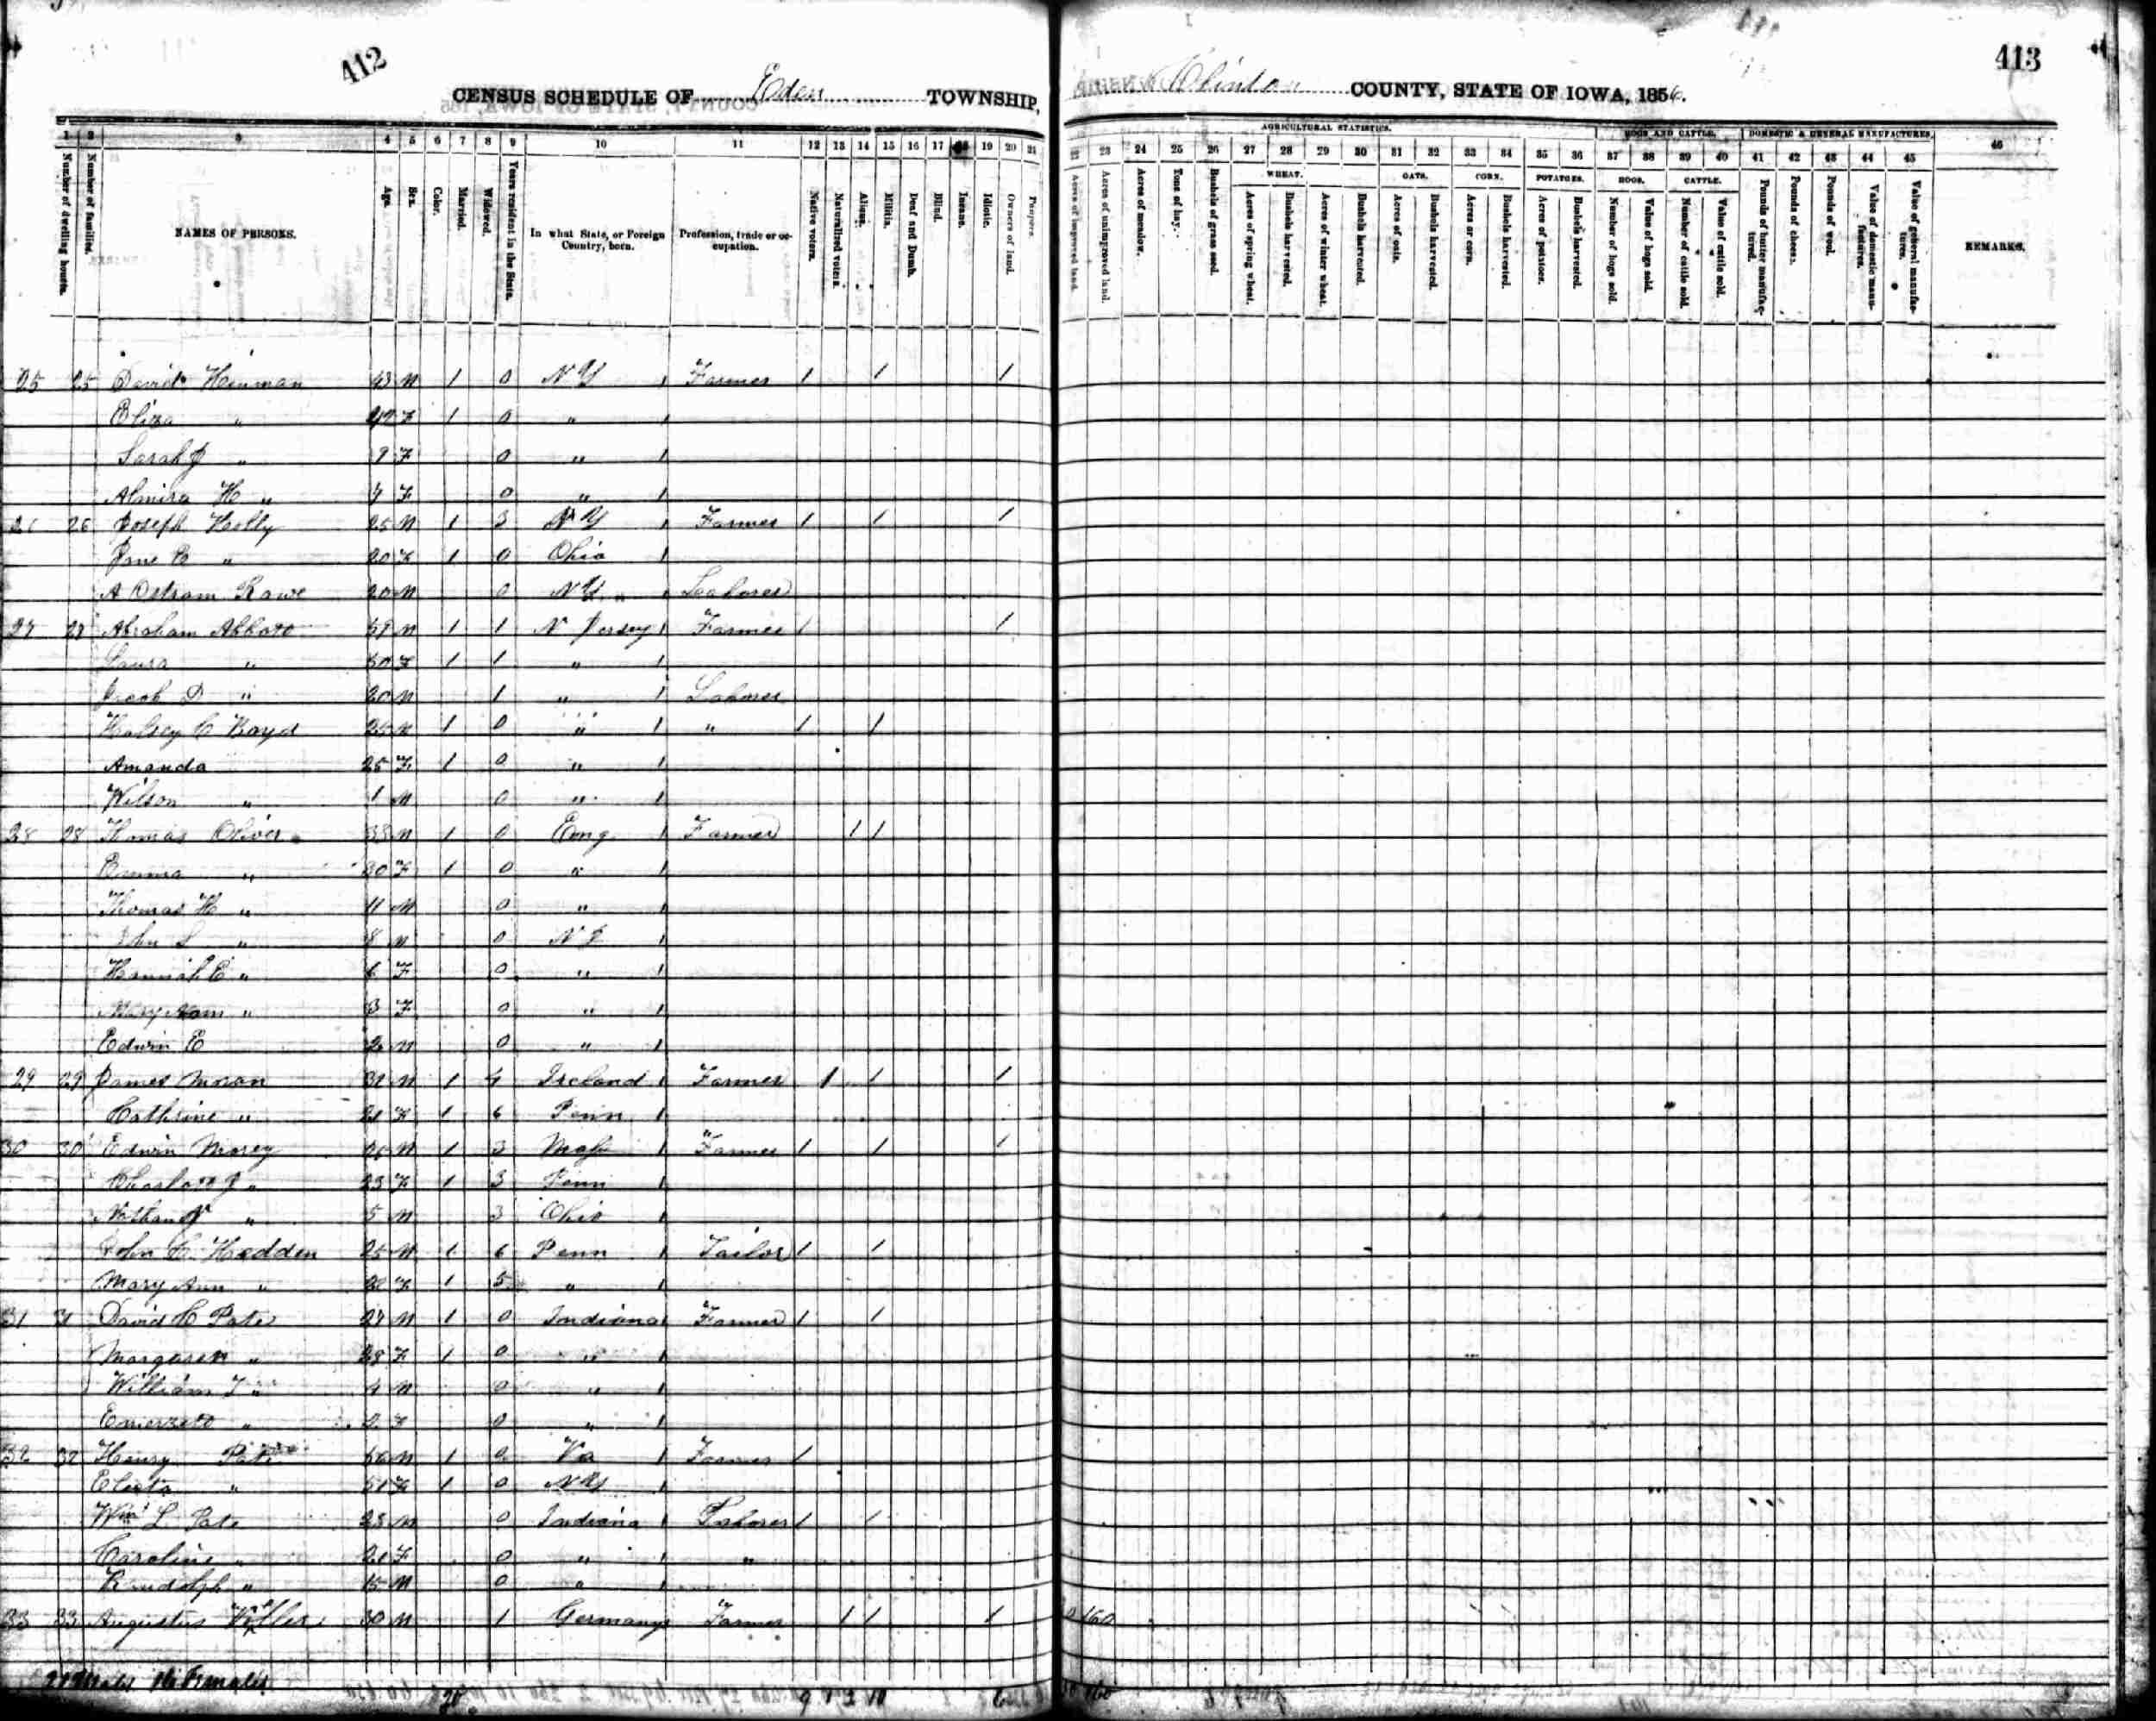 412
413
CENSUS SCHEDULE OF Eden TOWNSHIP, Clinton COUNTY, STATE OF IOWA, 1856.
AGRICULTURAL STATISTICS. HOGS AND CATTLE. DOMESTIC & GENERAL MANUFACTURES.
1 2 3 4 5 6 7 8 9 10 11 12 13 14 15 16 17 18 19 20 21 22 23 24 25 26 27 28 29 30 31 32 33 34 35 36 37 38 39 40 41 42 43 44 45 46
WHEAT. OATS. CORN. POTATOES. HOGS. CATTLE.
Number of dwelling houses.
Number of families.
NAMES OF PERSONS.
Age.
Sex.
Color.
Married.
Widowed.
Years resident in the State.
In what State, or Foreign Country, born.
Profession, trade or occupation.
Native voters.
Naturalized voters.
Aliens.
Militia.
Deaf and Dumb.
Blind.
Insane.
Idiotic.
Owners of land.
Paupers.
Acres of improved land.
Acres of unimproved land.
Acres of meadow.
Tons of hay.
Bushels of grass seed.
Acres of spring wheat.
Bushels harvested.
Acres of winter wheat.
Bushels harvested.
Acres of oats.
Bushels harvested.
Acres or corn.
Bushels harvested.
Acres of potatoes.
Bushels harvested.
Number of hogs sold.
Value of hogs sold.
Number of cattle sold.
Value of cattle sold.
Pounds of butter manufactured.
Pounds of cheese.
Pounds of wool.
Value of domestic manufactures.
Value of general manufactures.
REMARKS.
25 25 David Heinman 43 M 1 0 N Y 1 Farmer 1 1 1
Eliza " F 1 0 " 1
Sarah J " 9 F 0 " 1
Almira H " F 0 " 1
26 26 Joseph Holly 25 M 1 3 N Y 1 Farmer 1 1 1
Jane E " 20 F 1 0 Ohio 1
A Ostrom Rawe 20 M 0 N Y " 1 Laborer
27 27 Abraham Abbott M 1 1 N Jersey 1 Farmer 1 1
Laura " 50 F 1 1 " 1
Jacob D " 20 M 1 " 1 Laborer
Halsey C Boyd 25 M 1 0 " 1 " 1 1
Amanda 25 F 1 0 " 1
Wilson " 1 M 0 " 1
28 28 Thomas Oliver 38 M 1 0 Eng 1 Farmer 1 1
Emma " 30 F 1 0 " 1
Thomas H " 11 M 0 " 1
John S " 8 M 0 N J 1
Hannah E " 6 F 0 " 1
Mary Ann " 3 F 0 " 1
Edwin E 2 M 0 " 1
29 29 James Moran 31 M 1 4 Ireland 1 Farmer 1 1 1
Cathrine " 21 F 1 6 Penn 1
30 30 Edwin Morey 26 M 1 3 Mass 1 Farmer 1 1 1
Charlott J " 23 F 1 3 Penn 1
Nathan " 5 M 3 Ohio 1
John C Hadden 25 M 1 6 Penn 1 Tailor 1 1
Mary Ann " 22 F 1 5 " 1
31 31 David C Pate 27 M 1 0 Indiana 1 Farmer 1 1
Margaret " 28 F 1 0 " 1
William T " 4 M 0 " 1
" 2 F 0 " 1
32 32 Henry Pate M 1 0 Va 1 Farmer 1
Electa " 51 F 1 0 N Y 1
Wm L Pate 23 M 0 Indiana 1 Laborer 1 1
Caroline " 21 F 0 " 1 "
Randolph " 15 M 0 " 1
33 33 Augustus 30 M 1 Germany 1 Farmer 1 1 1 160
Males 16 Females
20 9 1 2 10 6 160